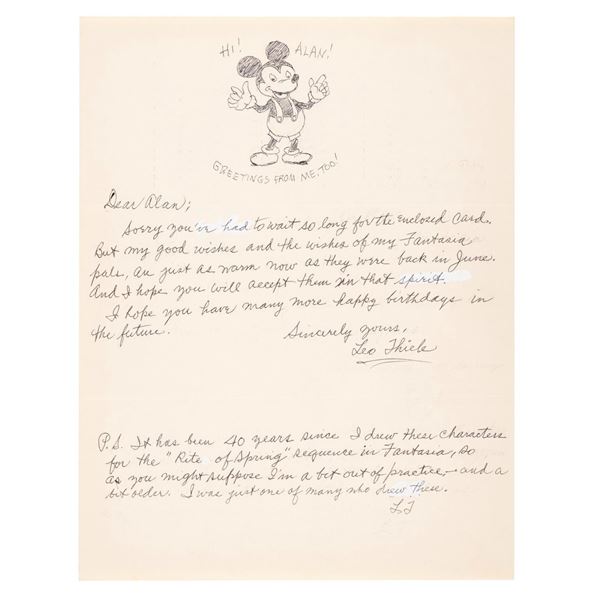 HI! ALAN!
GREETINGS FROM ME, TOO!
Dear Alan;
Sorry you've had to wait so long for the enclosed card.
But my good wishes and the wishes of my Fantasia
pals, are just as warm now as they were back in June.
And I hope you will accept them in that spirit.
I hope you have many more happy birthdays in
the future.
Sincerely yours,
Leo Thiele
P.S. It has been 40 years since I drew these characters
for the "Rite of Spring" sequence in Fantasia, so
as you might suppose I'm a bit out of practice — and a
bit older. I was just one of many who drew these.
L.T